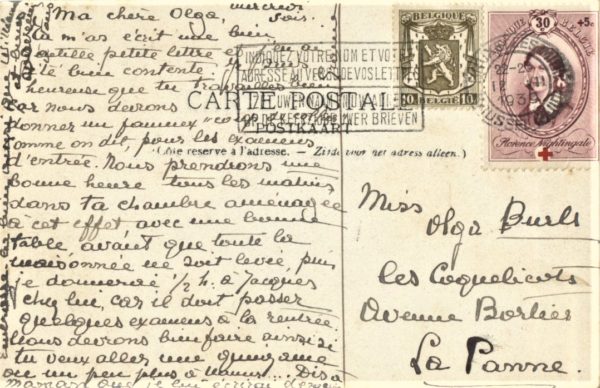 mercredi
soir.
Ma chère Olga,
tu m'as écrit une bien
gentille petite lettre et j'en ai
été bien contente.
heureuse que tu travailles bien
car nous devrons
donner un fameux "coup
comme on dit, pour les examens
d'entrée. Nous prendrons une
bonne heure tous les matins
dans ta chambre aménagée
à cet effet, avec une bonne
table avant que toute la
maisonnée ne soit levée, puis
je donnerai 1/2 h. à Jacques
chez lui, car il doit passer
quelques examens à la rentrée
Nous devrons bien faire ainsi si
tu veux aller une quinzaine
ou un peu plus à Namur.... Dis à
maman que je lui écrirai
INDIQUEZ VOTRE NOM ET VOTRE
ADRESSE AU VERSO DE VOS LETTRES
UW NAAM
OP DE KEERZIJDE UWER BRIEVEN
CARTE POSTALE
POSTKAART
(Côté réservé à l'adresse. — Zijde voor het adress alleen.)
BELGIQUE
10 BELGIË 10
BELGIQUE BELGIË
30 +5c
Florence Nightingale
12 VII
193
Miss
Olga Burls
les Coquelicots
Avenue Bortier
La Panne.